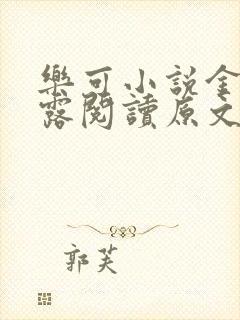 樂可小說金
露閱讀原文
郭芙